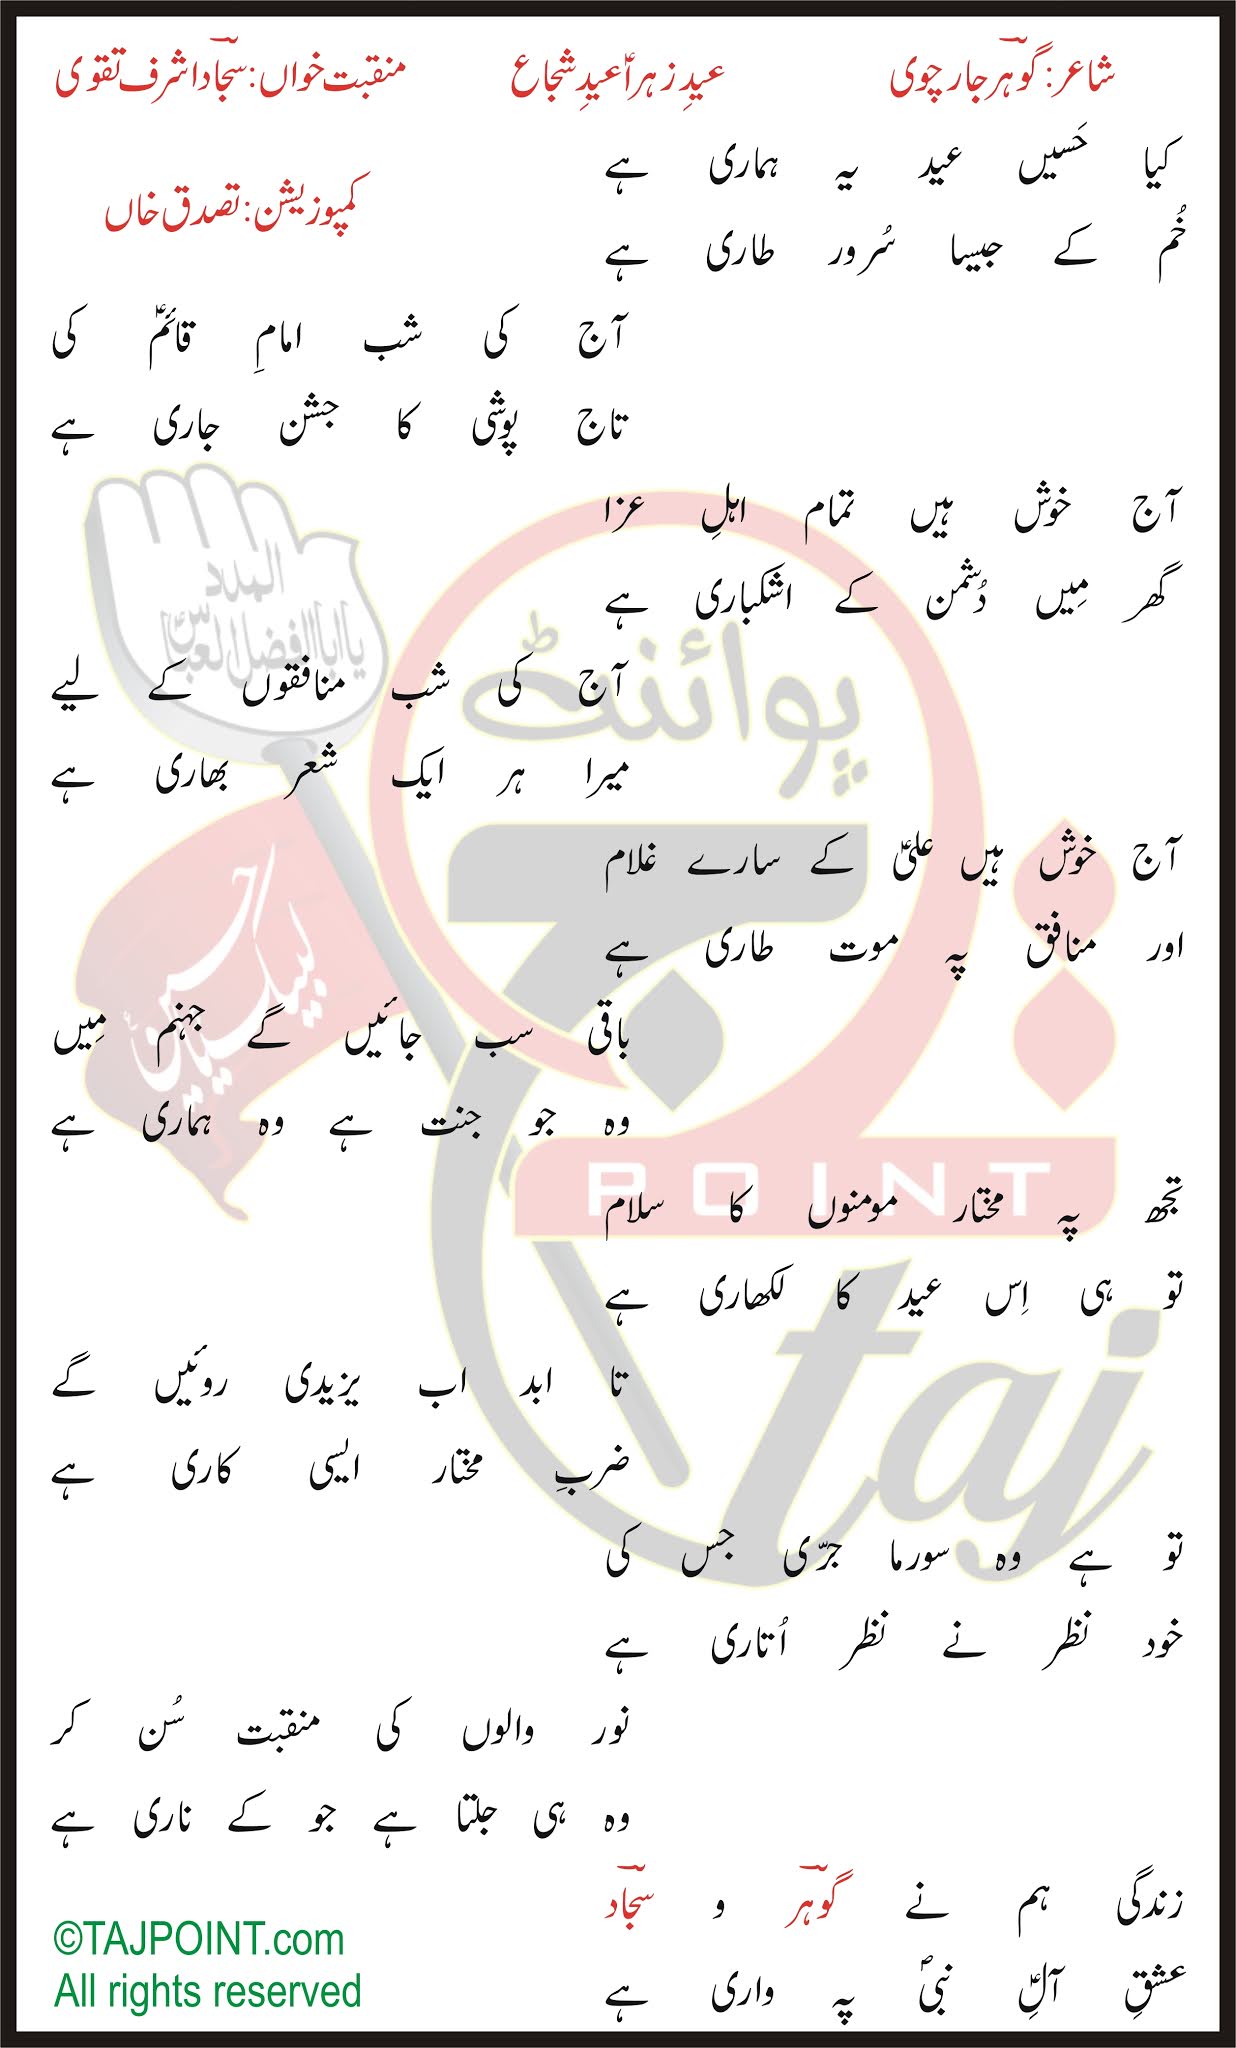 شاعر: گوہر جارچوی عیدِ زہراؑ عیدِ شجاع منقبت خواں: سجاد اشرف تقوی
کیا حَسیں عید یہ ہماری ہے
کمپوزیشن: تصدق خاں
خُم کے جیسا سُرور طاری ہے
آج کی شب امامِ قائمؑ کی
تاج پوشی کا جشن جاری ہے
آج خوش ہیں تمام اہلِ عزا
گھر مِیں دُشمن کے اشکباری ہے
آج کی شب منافقوں کے لیے
میرا ہر ایک شعر بھاری ہے
آج خوش ہیں علیؑ کے سارے غلام
اور منافق پہ موت طاری ہے
باقی سب جائیں گے جہنم مِیں
وہ جو جنت ہے وہ ہماری ہے
تجھ پہ مختار مومنوں کا سلام
تو ہی اِس عید کا لکھاری ہے
تا ابد اب یزیدی روئیں گے
ضربِ مختار ایسی کاری ہے
تو ہے وہ سورما جرّی جس کی
خود نظر نے نظر اُتاری ہے
نور والوں کی منقبت سُن کر
وہ ہی جلتا ہے جو کے ناری ہے
زندگی ہم نے گوہر و سجاد
عشقِ آلِؑ نبیؐ پہ واری ہے
©TAJPOINT.com
All rights reserved
المدد
یا ابا الفضل العباسؑ
لبیک یا حسینؑ
پوائنٹ
تاج
POINT
taj